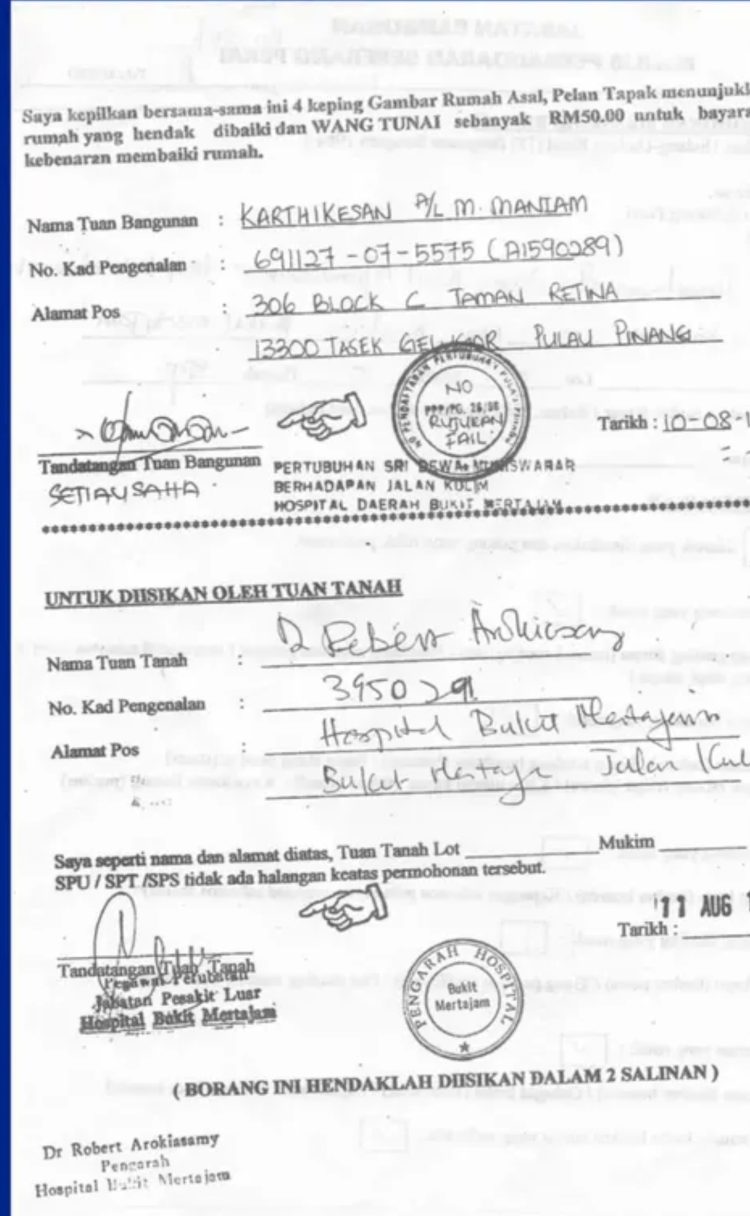 Saya kepilkan bersama-sama ini 4 keping Gambar Rumah Asal, Pelan Tapak menunjukk
rumah yang hendak dibaiki dan WANG TUNAI sebanyak RM50.00 untuk bayara
kebenaran membaiki rumah.
Nama Tuan Bangunan : KARTHIKESAN A/L M. MANIAM
No. Kad Pengenalan : 691127-07-5575 (A1590289)
Alamat Pos : 306 BLOCK C TAMAN RETNA
13300 TASEK GELUGOR PULAU PINANG
NO
PPP/PG. 26/98
RUJUKAN
FAIL.
Tarikh : 10-08-1
Tandatangan Tuan Bangunan
SETIAUSAHA.
PERTUBUHAN SRI DEWA MUNISWARAR
BERHADAPAN JALAN KULIM
HOSPITAL DAERAH BUKIT MERTAJAM
UNTUK DIISIKAN OLEH TUAN TANAH
Nama Tuan Tanah : D Robert Arokiasamy
No. Kad Pengenalan : 3950291
Alamat Pos : Hospital Bukit Mertajam
Bukit Mertajam Jalan Kul
Saya seperti nama dan alamat diatas, Tuan Tanah Lot Mukim
SPU / SPT /SPS tidak ada halangan keatas permohonan tersebut.
11 AUG 1
Tarikh :
Tandatangan Tuan Tanah
Pegawai Perubatan
Jabatan Pesakit Luar
Hospital Bukit Mertajam
PENGARAH HOSPITAL
Bukit
Mertajam
( BORANG INI HENDAKLAH DIISIKAN DALAM 2 SALINAN )
Dr Robert Arokiasamy
Pengarah
Hospital Bukit Mertajam